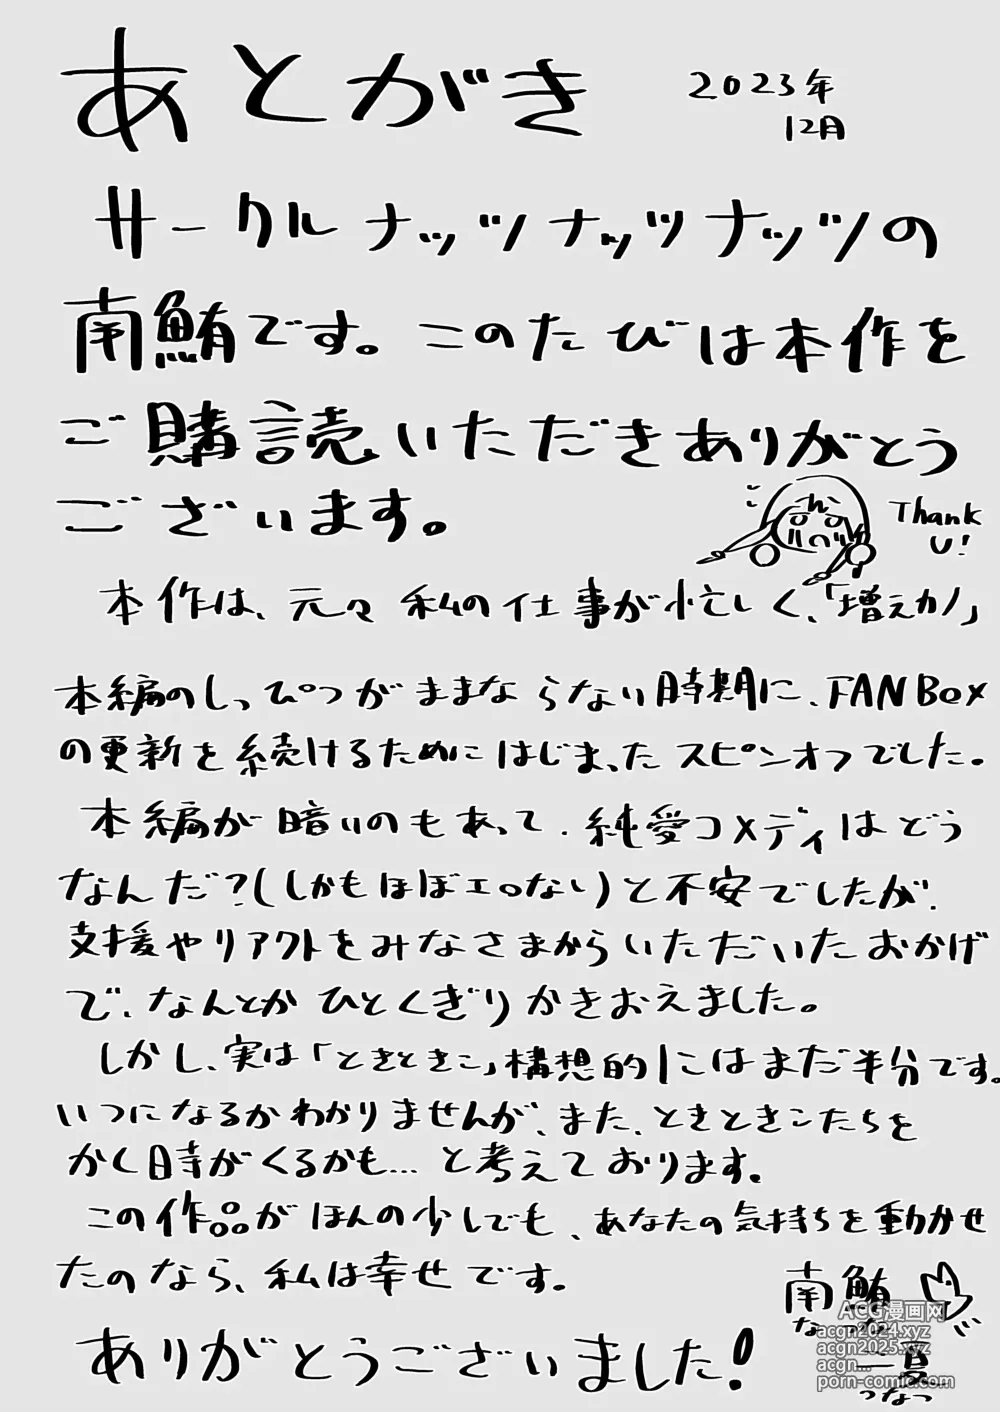 あとがき
2023年
12月
サークルナッツナッツナッツの
南鮪です。このたびは本作を
ご購読いただきありがとう
ございます。
Thank
U!
本作は、元々私の仕事が忙しく、「増えカノ」
本編のしっぴつがままならない時期に、FANBox
の更新を続けるためにはじまったスピンオフでした。
本編が暗いのもあって、純愛コメディはどう
なんだ?(しかもほぼエロない)と不安でしたが、
支援やリアクトをみなさまからいただいたおかげ
で、なんとかひとくぎりかきおえました。
しかし、実は「ときときこ」構想的にはまだ半分です。
いつになるかわかりませんが、また、ときときこたちを
かく時がくるかも…と考えております。
この作品がほんの少しでも、あなたの気持ちを動かせ
たのなら、私は幸せです。
ありがとうございました!
南鮪
ACG漫画网
acgn2024.xyz
acgn2025.xyz
acgn...
porn-comic.com